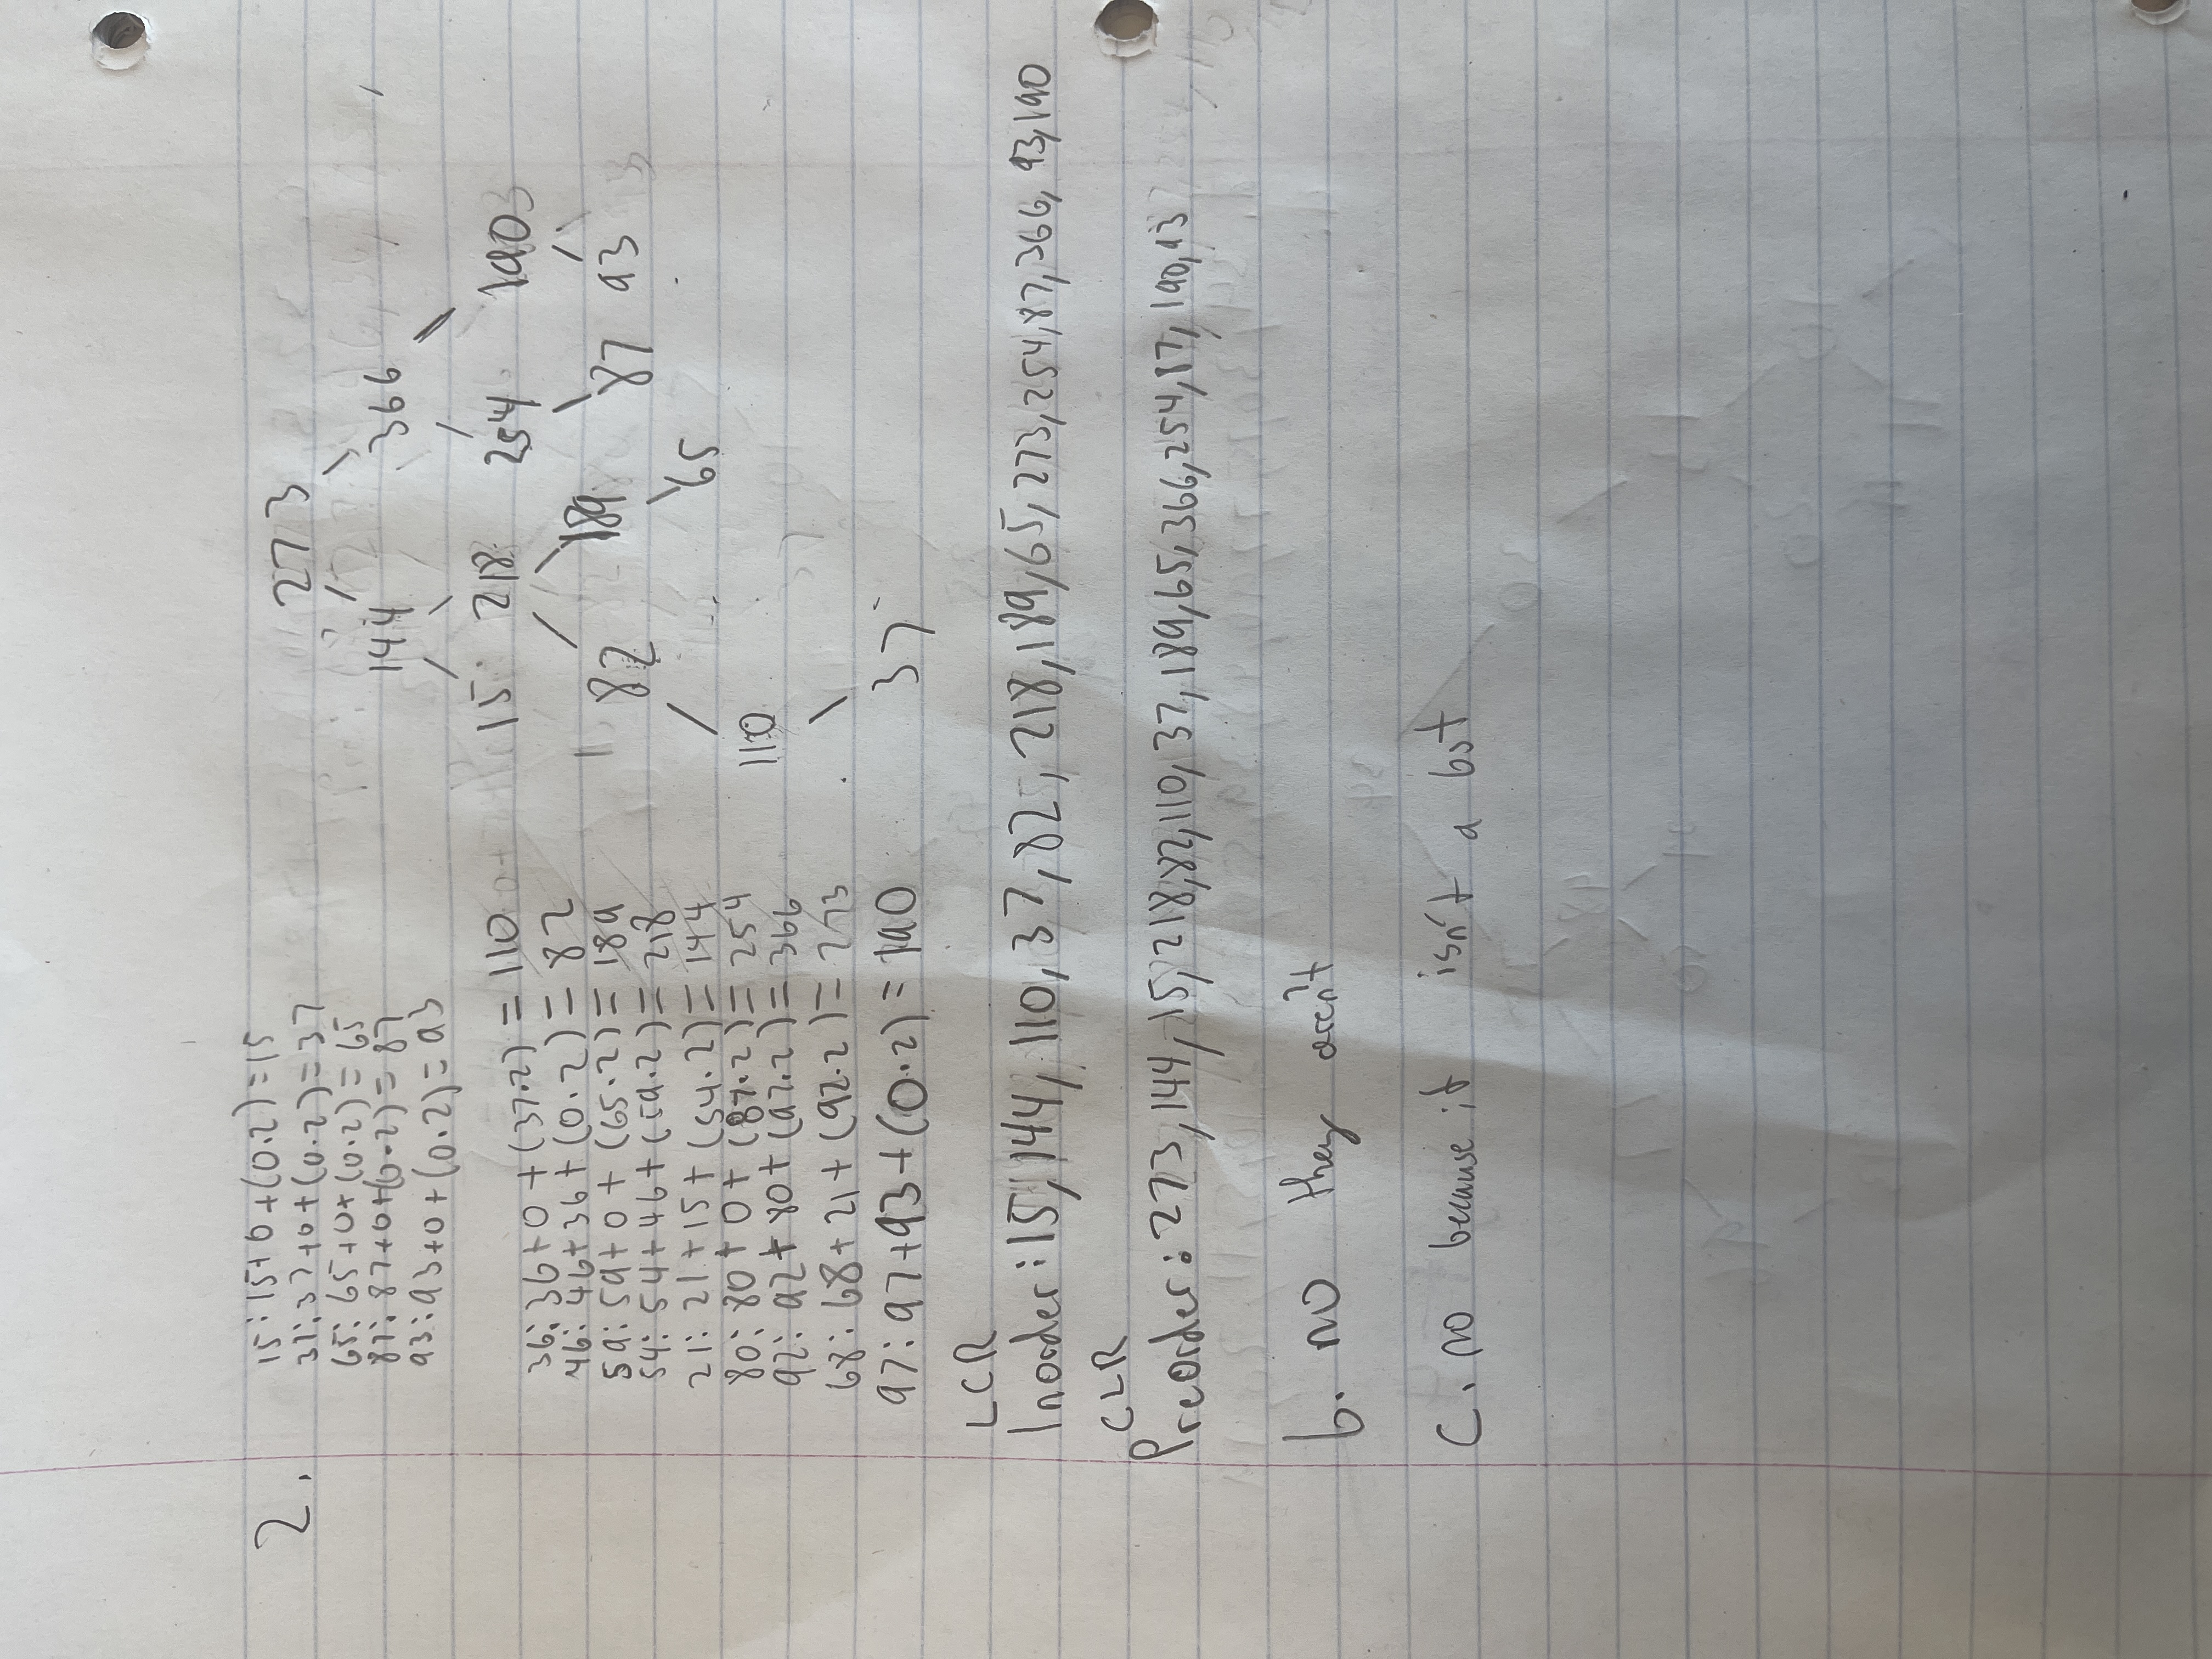 2.
15: 15+0+(0·2)=15
37: 37+0+(0·2)=37
65: 65+0+(0·2)=65
87: 87+0+(0·2)=87
93: 93+0+(0·2)=93
36: 36+0+(37·2)=110
46: 46+36+(0·2)=82
59: 59+0+(65·2)=189
54: 54+46+(59·2)=218
21: 21+15+(54·2)=144
80: 80+0+(87·2)=254
92: 92+80+(97·2)=366
68: 68+21+(92·2)=273
97: 97+93+(0·2)=190
273
144 366
15 218 254 190
82 189 87 93
65
110
37
LCR
Inorder: 15, 144, 110, 37, 82, 218, 189, 65, 273, 254, 87, 366, 93, 190
CLR
Preorder: 273, 144, 15, 218, 82, 110, 37, 189, 65, 366, 254, 87, 190, 93
b. no they aren't
C. no because it isn't a bst